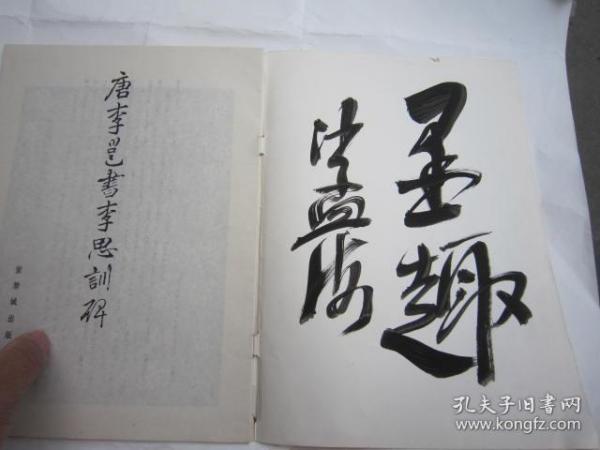 唐李邕書李思訓碑
紫禁城出版
墨趣
沙孟海
孔夫子旧書网
www.kongfz.com